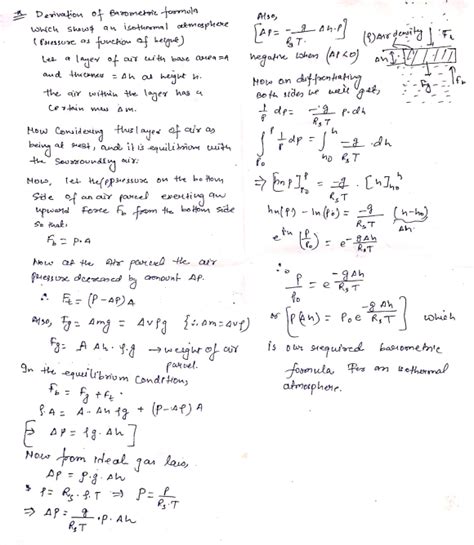 * Derivation of Barometric formula
which shows an isothermal atmosphere
(pressure as function of height)
Let a layer of air with base area=A
and thickness = Δh at height h.
the air within the layer has a
certain mass Δm.
Now considering this layer of air as
being at rest, and it is equilibrium with
the surrounding air.
Now, let the pressure on the bottom
side of an air parcel exerting an
upward force F_b from the bottom side
so that:
F_b = P.A
Now at the Air parcel the air
pressure decreased by amount ΔP.
∴ F_t = (P-ΔP)A
Also, F_g = Δmg = ΔVρg {∵Δm=Δvρ}
F_g = A Δh . ρ.g → weight of air
parcel.
In the equilibrium condition,
F_b = F_g + F_t.
P.A = A-Δh ρg + (P-ΔP)A
[⇒ ΔP = ρg.Δh]
Now from ideal gas law,
ΔP = ρ.g.Δh
P = R_s.ρ.T ⇒ ρ = P/(R_s.T)
⇒ ΔP = g/(R_s T) .P. Δh
Also,
[ΔP = -g/(R_s T) Δh.P]
negative when (ΔP<0)
Now on differentiating
both sides we will get,
1/P dp = -g/(R_s T) P.dh
∫_{P0}^{P} 1/P dp = ∫_{h0}^{h} -g/(R_s T) .dh
⇒ [ln P]_{P0}^{P} = -g/(R_s T) . [h]_{h0}^{h}
ln(P) - ln(P0) = -g/(R_s T) (h-h0)
Δh
e^{ln}(P/P0) = e^{-gΔh/(R_s T)}
∴ P/P0 = e^{-gΔh/(R_s T)}
or [P(Δh) = P0 e^{-gΔh/(R_s T)}] which
is our required barometric
formula for an isothermal
atmosphere.
(ρ) Air density
F_t
Δh
F_g
F_b